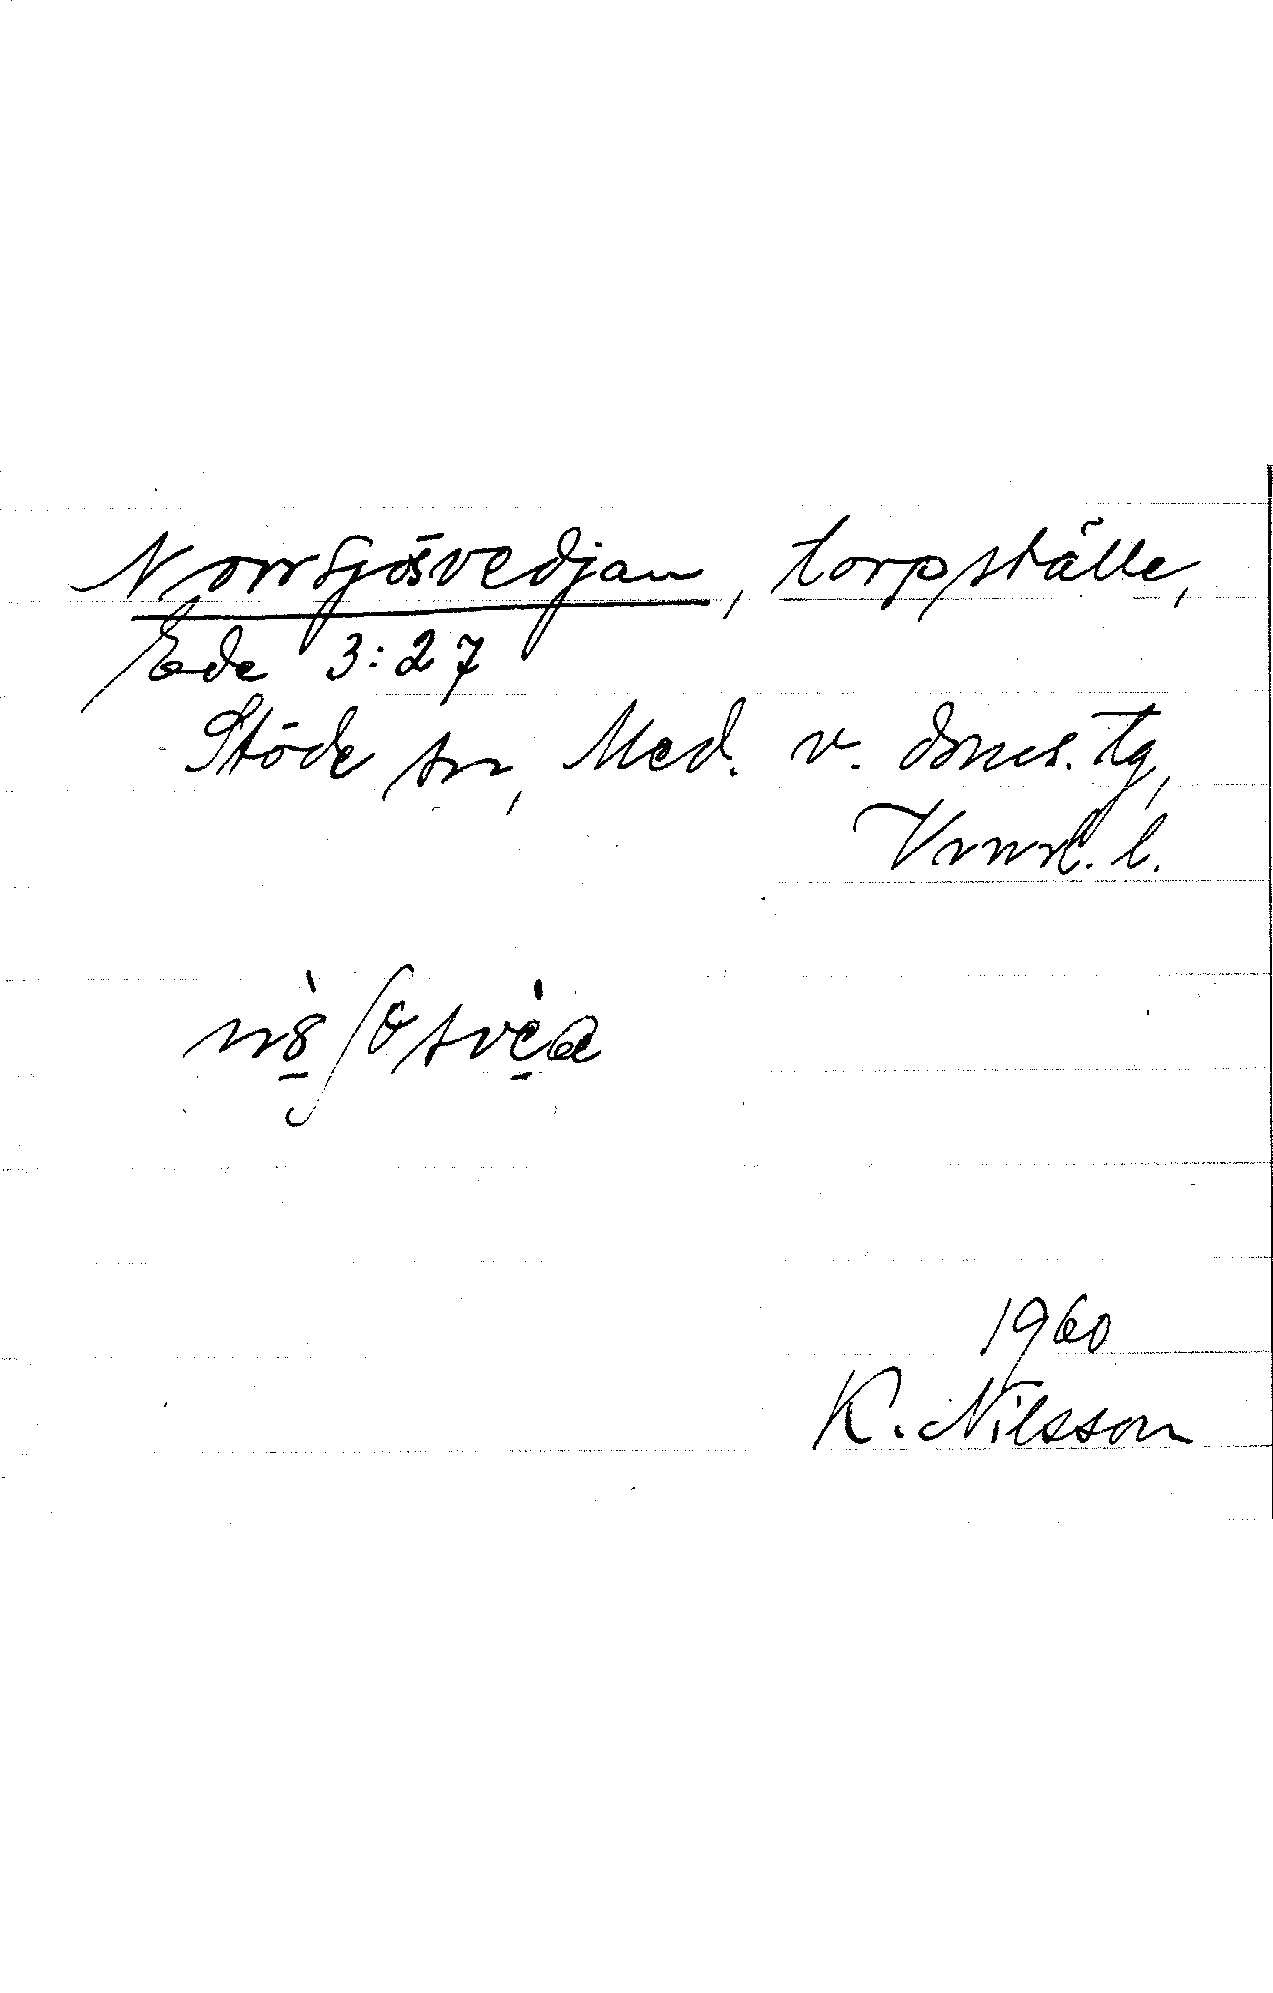 Norrsjösvedjan, torpställe,
Ede 3:27
Stöde sn, Med. v. doms. tg,
Vnorrl. l.
1960
K. Nilsson